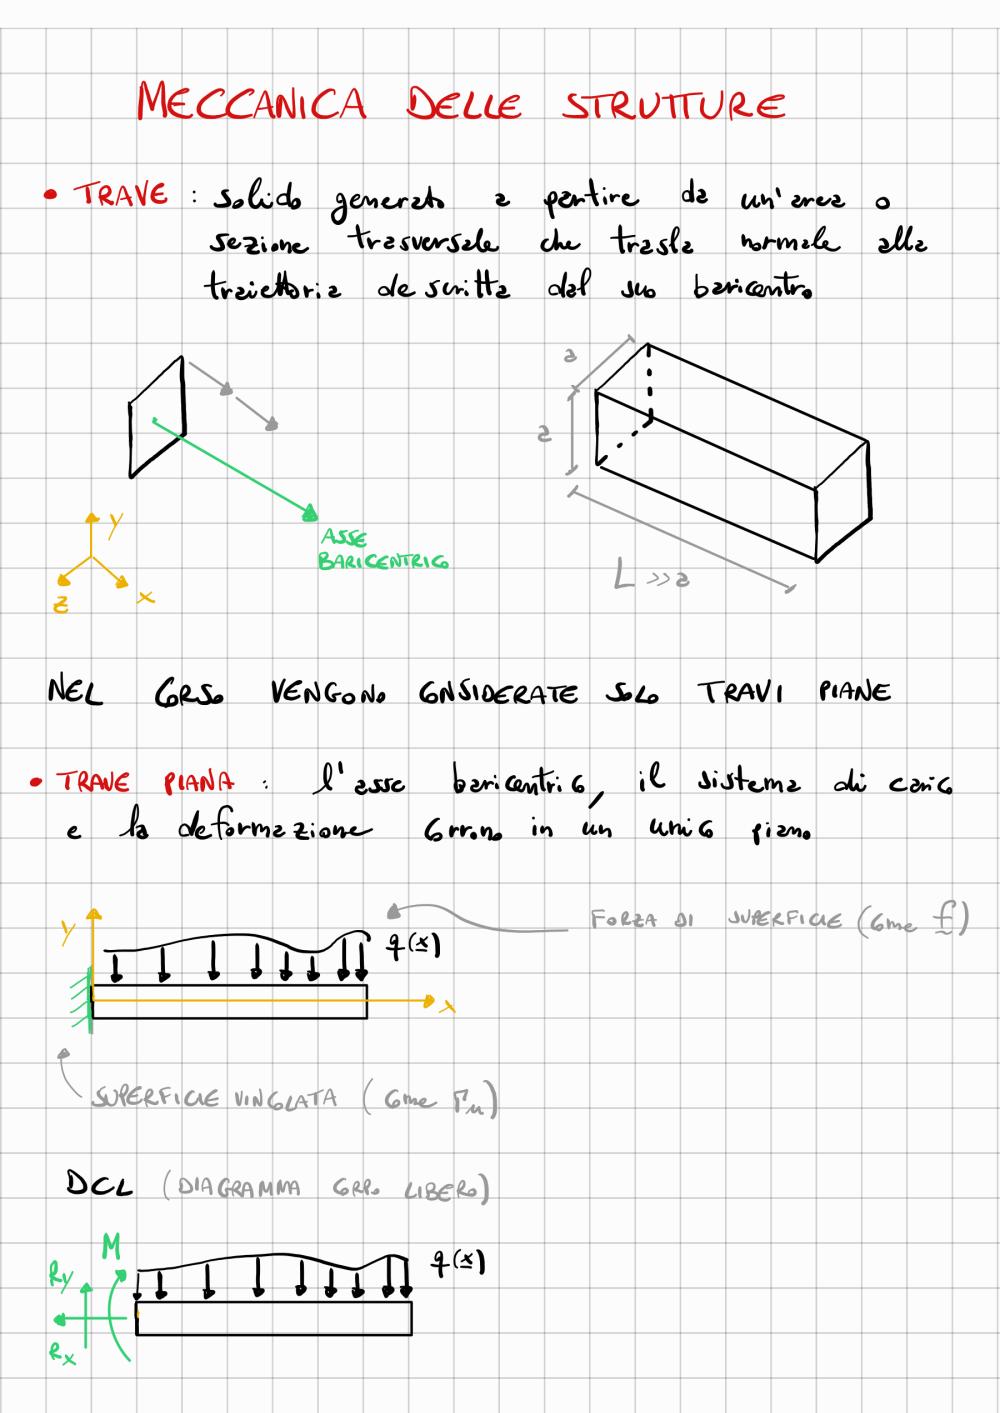 MECCANICA DELLE STRUTTURE
• TRAVE : solido generato a partire da un'area o
sezione trasversale che trasla normale alla
traiettoria descritta dal suo baricentro
a
a
ASSE
BARICENTRICO
y
z
x
L >> a
NEL CORSO VENGONO CONSIDERATE SOLO TRAVI PIANE
• TRAVE PIANA : l'asse baricentrico, il sistema di carico
e la deformazione corrono in un unico piano
FORZA DI SUPERFICIE (come f)
y
q(x)
x
SUPERFICIE VINCOLATA (come Γu)
DCL (DIAGRAMMA CORPO LIBERO)
M
q(x)
Ry
Rx